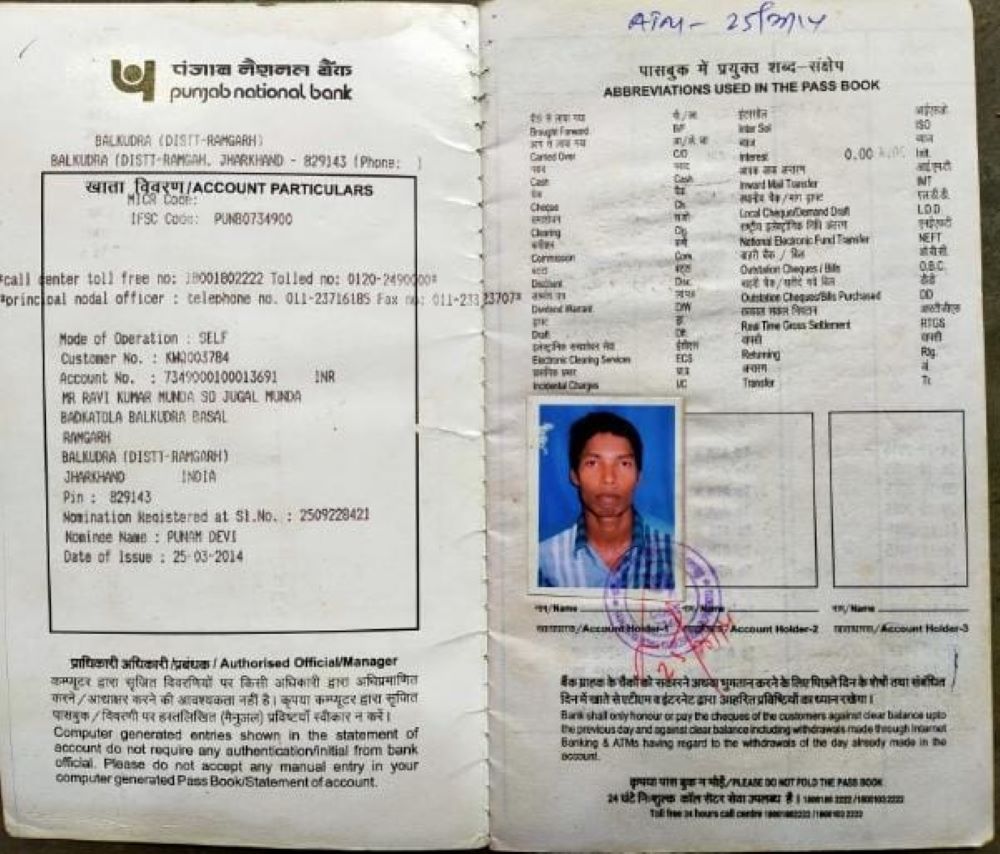 पंजाब नैशनल बैंक
punjab national bank
BALKUDRA (DISTT-RAMGARH)
BALKUDRA (DISTT-RAMGAH, JHARKHAND - 829143 (Phone: )
खाता विवरण/ACCOUNT PARTICULARS
MICR Code:
IFSC Code: PUNB0734900
*call center toll free no: 18001802222 Tolled no: 0120-2490000*
*principal nodal officer : telephone no. 011-23716185 Fax no: 011-23323707*
Mode of Operation : SELF
Customer No. : KWQ003784
Account No. : 7349000100013691 INR
MR RAVI KUMAR MUNDA SO JUGAL MUNDA
BADKATOLA BALKUDRA BASAL
RAMGARH
BALKUDRA (DISTT-RAMGARH)
JHARKHAND INDIA
Pin : 829143
Nomination Registered at Sl.No. : 2509228421
Nominee Name : PUNAM DEVI
Date of Issue : 25-03-2014
प्राधिकारी अधिकारी/प्रबंधक / Authorised Official/Manager
कम्प्यूटर द्वारा सृजित विवरणियों पर किसी अधिकारी द्वारा अधिप्रमाणित
करने / आद्याक्षर करने की आवश्यकता नहीं है। कृपया कम्प्यूटर द्वारा सृजित
पासबुक / विवरणी पर हस्तलिखित (मैनुअल) प्रविष्टयाँ स्वीकार न करें।
Computer generated entries shown in the statement of
account do not require any authentication/initial from bank
official. Please do not accept any manual entry in your
computer generated Pass Book/Statement of account.
ATM - 25/3/14
पासबुक में प्रयुक्त शब्द-संक्षेप
ABBREVIATIONS USED IN THE PASS BOOK
Brought Forward B/F Inter Sol ISO
Carried Over C/O Interest 0.00 Int.
Cash Cash Inward Mail Transfer IMT
Cheque Ch. Local Cheque/Demand Draft L.D.D
Clearing Clg National Electronic Fund Transfer NEFT
Commission Com Outstation Cheques / Bills O.B.C.
Discount Disc Outstation Cheques/Bills Purchased DD
Dividend Warrant D/W Real Time Gross Settlement RTGS
Draft Dft. Returning Rtg.
Electronic Clearing Services ECS Transfer Tr.
Incidental Charges I/C
नाम/Name नाम/Name नाम/Name
Account Holder-1 Account Holder-2 खाताधारक/Account Holder-3
बैंक ग्राहक के चैकों को सकारने अथवा भुगतान करने के लिए पिछले दिन के शेषों तथा संबंधित
दिन में खाते से एटीएम व इंटरनेट द्वारा आहरित प्रविष्टियों का ध्यान रखेगा।
Bank shall only honour or pay the cheques of the customers against clear balance upto
the previous day and against clear balance including withdrawals made through Internet
Banking & ATMs having regard to the withdrawals of the day already made in the
account.
कृपया पास बुक न मोड़ें/PLEASE DO NOT FOLD THE PASS BOOK
24 घंटे निःशुल्क कॉल सेंटर सेवा उपलब्ध है। 1800180 2222 / 1800103 2222
Toll free 24 hours call centre 18001802222 / 1800103 2222